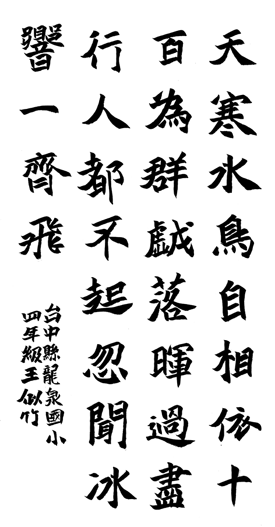 天寒水鳥自相依十
百為群戲落暉過盡
行人都不起忽聞冰
響一齊飛
台中縣龍泉國小
四年級王似竹